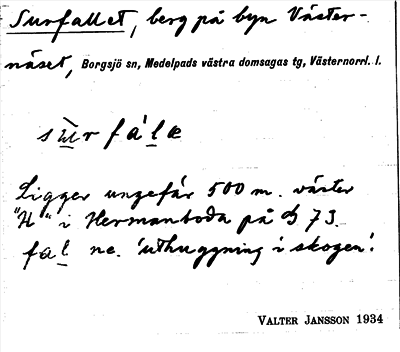 Surfallet, berg på byn Väster-
näset, Borgsjö sn, Medelpads västra domsagas tg, Västernorrl. l.
su̱r fáḻæ
Ligger ungefär 500 m. väster
"H" i Hermanboda på 73.
faḻ ne. 'uthuggning i skogen'.
VALTER JANSSON 1934